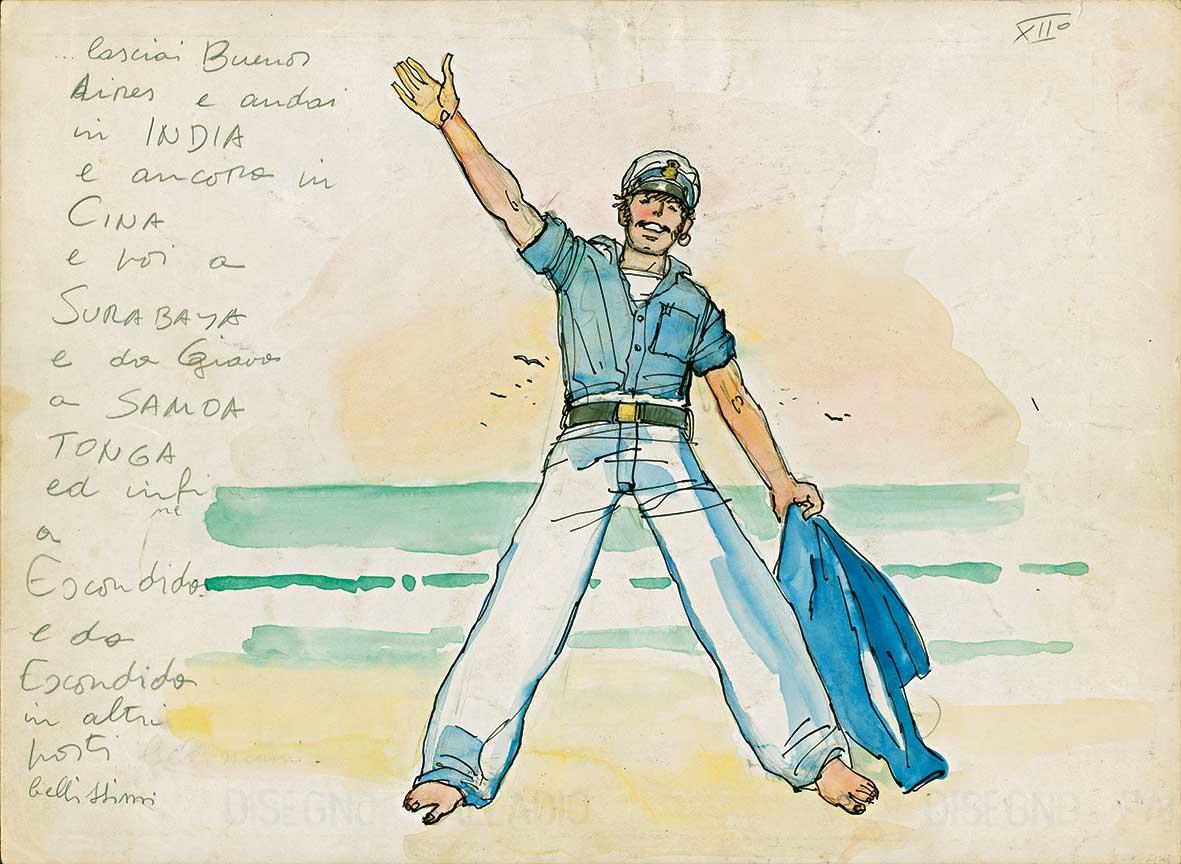 XII°
... lasciai Buenos
Aires e andai
in INDIA
e ancora in
CINA
e poi a
SURABAYA
e da Giava
a SAMOA
TONGA
ed infi
ne
a
Escondida.
e da
Escondida
in altri
posti
bellissimi
DISEGNO
DISEGNO